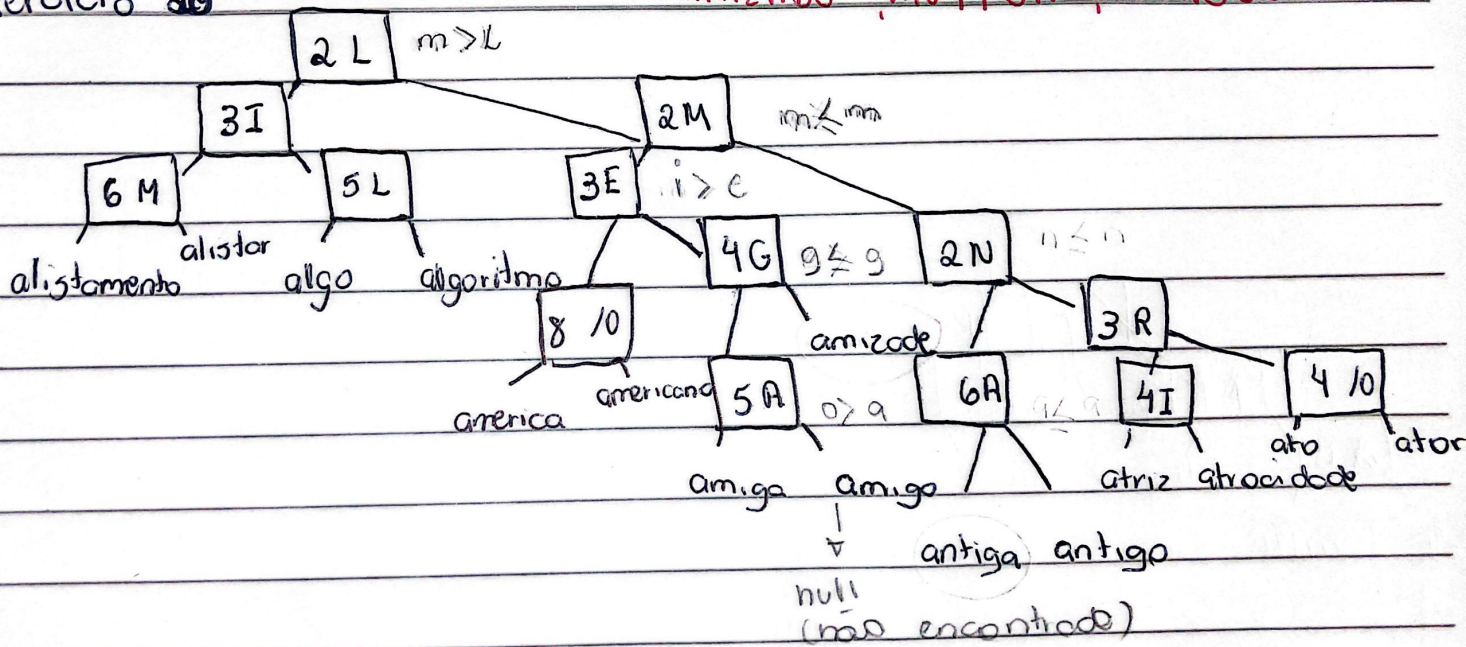 2 L m>L
3I 2M m≤m
6 M 5L 3E i>e
alistamento alistar algo algoritmo 4G g≤g 2N n≤n
8 /0 amizade 3 R
america americano 5A o>a 6A a≤a 4I 4 /0
amiga amigo atriz atrocidade ato ator
antiga antigo
null
(não encontrado)